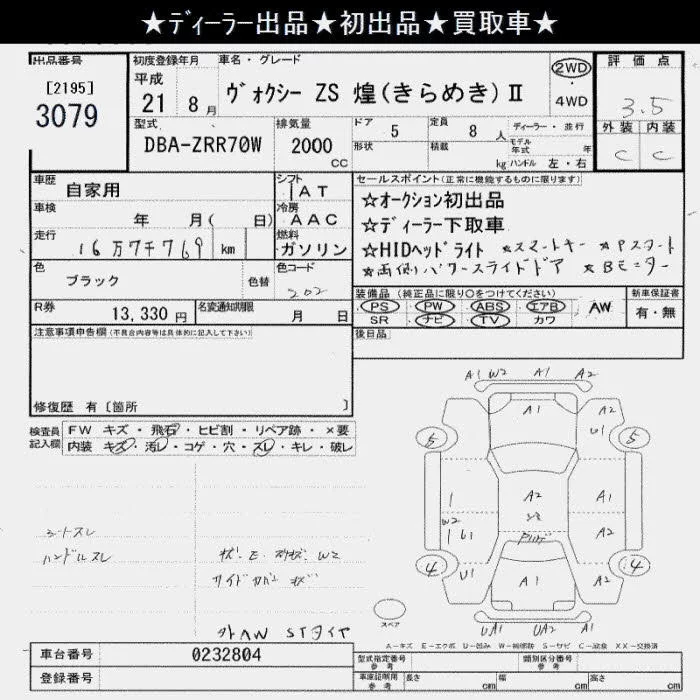 ★ディーラー出品★初出品★買取車★
出品番号
[2195]
3079
初度登録年月
平成
21 8月
車名・グレード
ヴォクシー ZS 煌(きらめき)Ⅱ
2WD
・
4WD
評価点
3.5
外装 内装
C C
型式
DBA-ZRR70W
排気量
2000
CC
ドア 5
定員 8 人
ディーラー・並行
形状
積載 kg
モデル年式 年
ハンドル 左・右
車歴 自家用
シフト
IAT
車検 年 月( 日)
冷房
AAC
走行 16万7千769 km
燃料
ガソリン
色 ブラック 色替
色コード
202
R券 13,330円
名変通知期限 月 日
セールスポイント(正常に機能するものに限ります)
☆オークション初出品
☆ディーラー下取車
☆HIDヘッドライト ☆スマートキー ☆Pスタート
☆両側パワースライドドア ☆Bモニター
装備品(純正品に限り○をつけてください)
PS PW ABS エアB AW
SR ナビ TV カワ
新車保証書
有・無
後日品
注意事項申告欄(不具合内容等は具体的に記入して下さい)
修復歴 有〔箇所 〕
検査員記入欄
FW キズ・飛石・ヒビ割・リペア跡・×要
内装 キズ・汚レ・コゲ・穴・スレ・キレ・破レ
シートスレ
ハンドルスレ
W2
サイドカバー キズ
外AW STタイヤ
A1 W2 A1 A2
A1 A2
U1
5 5
A2 A1
W2
U1 A2
4 4
U1 A1 A2
UA1 UA2 A1
スペア
A-キズ E-エクボ U-凹み W-補修跡 S-サビ C-腐食 XX-交換済
車台番号 0232804
登録番号
型式指定番号
参考
類別区分番号
参考
車庫証明用
参考
長さ cm
幅 cm
高さ cm